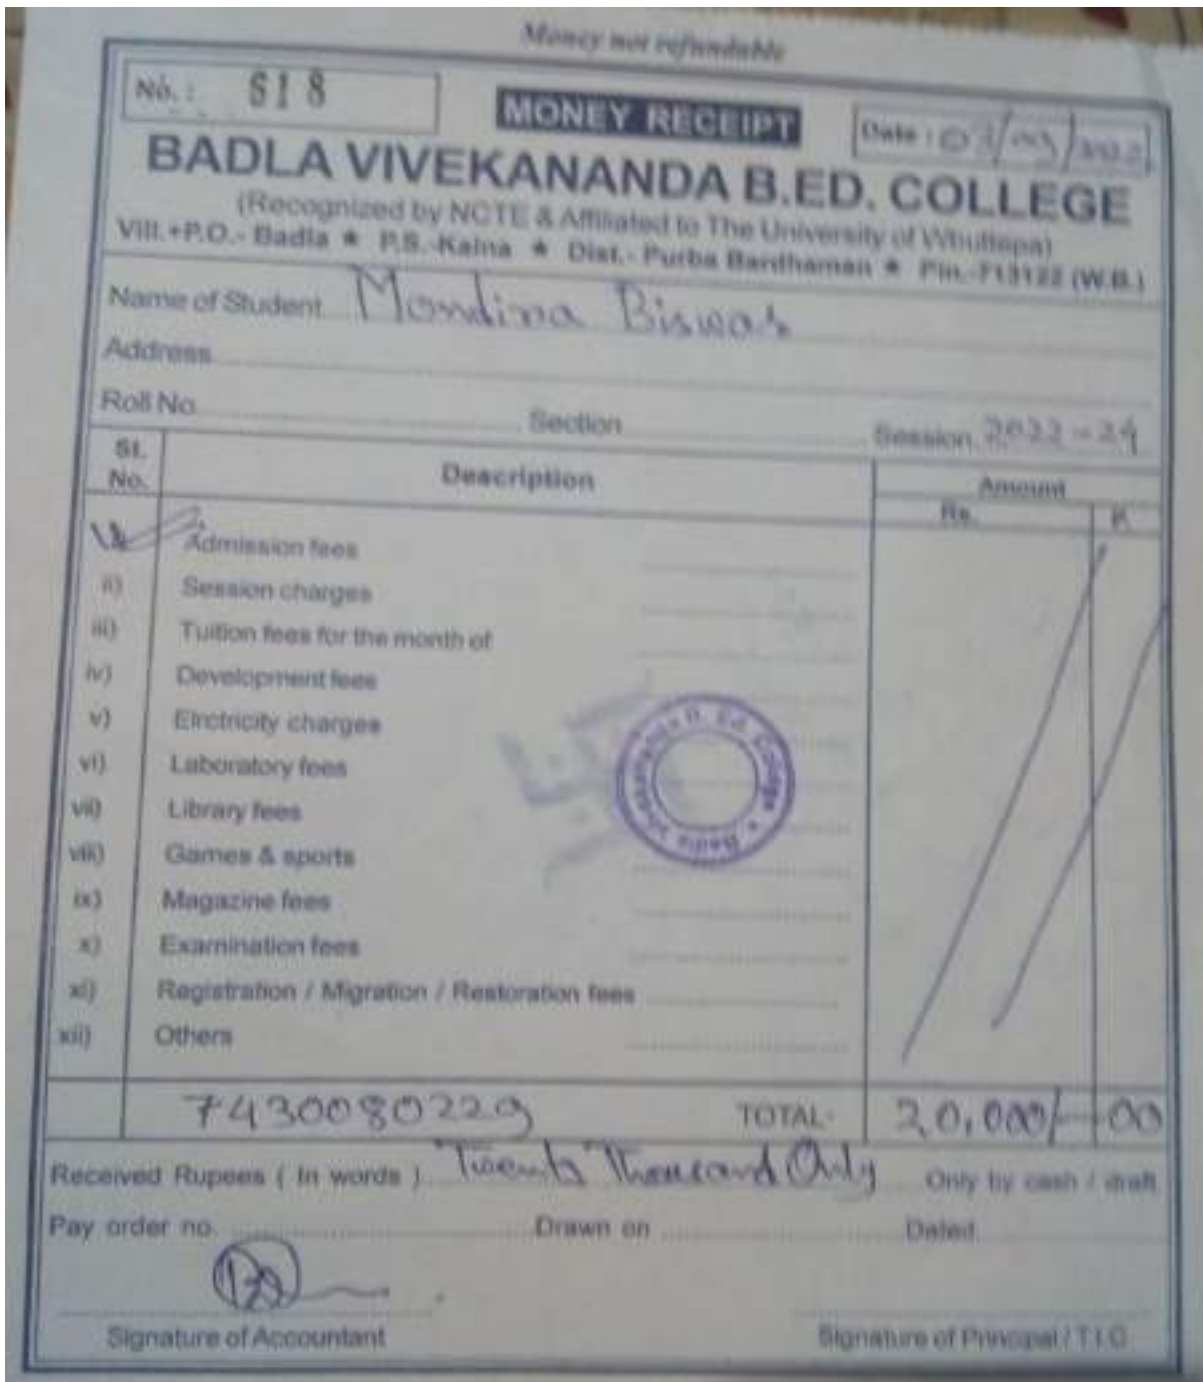 Money not refundable
No. : 818
MONEY RECEIPT
Date : 03/09/2022
BADLA VIVEKANANDA B.ED. COLLEGE
(Recognized by NCTE & Affiliated to The University of
Vill.+P.O.- Badla ★ P.S.-Kalna ★ Dist.- Purba Bardhaman ★ Pin.-713122 (W.B.)
Name of Student Mondina Biswas
Address
Roll No. Section Session 2022-24
Sl. No. Description Amount
Rs. P.
Admission fees
ii) Session charges
iii) Tuition fees for the month of
iv) Development fees
v) Elrctricity charges
vi) Laboratory fees
vii) Library fees
viii) Games & sports
ix) Magazine fees
x) Examination fees
xi) Registration / Migration / Restoration fees
xii) Others
7430080229 TOTAL- 20,000/- 00
Received Rupees ( In words ) Twenty Thousand Only Only by cash / draft
Pay order no. Drawn on Dated
Signature of Accountant Signature of Principal / T.I.C